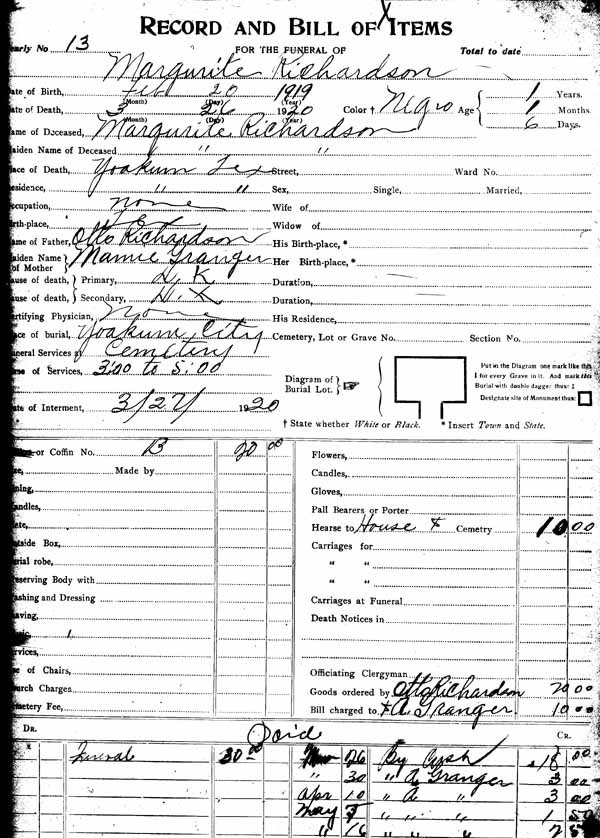 RECORD AND BILL OF ITEMS
early No 13 FOR THE FUNERAL OF Total to date
Margurite Richardson
ate of Birth, Feb 20 1919 1 Years.
(Month) (Day) (Year)
ate of Death, 3 26 1920 Color † Negro Age 1 Months.
(Month) (Day) (Year)
ame of Deceased, Margurite Richardson 6 Days.
aiden Name of Deceased " " "
ace of Death, Yoakum Tex Street, Ward No.
esidence, " " Sex, Single, Married,
ccupation, none Wife of
rth-place, Tex Widow of
ame of Father, Otto Richardson His Birth-place, *
aiden Name of Mother Mamie Granger Her Birth-place, *
ause of death, Primary, D. K Duration,
ause of death, Secondary, D. K Duration,
ertifying Physician, None His Residence,
ace of burial, Yoakum City Cemetery, Lot or Grave No. Section No.
uneral Services at Cemetery
me of Services, 3:00 to 5:00
Diagram of Burial Lot.
Put in the Diagram one mark like this
I for every Grave in it. And mark this
Burial with double dagger thus: ‡
Designate site of Monument thus:
ate of Interment, 3/27/ 1920
† State whether White or Black. * Insert Town and State.
or Coffin No. B 20 00 Flowers,
Made by Candles,
ning, Gloves,
andles, Pall Bearers or Porter
ate, Hearse to House & Cemetry 10 00
tside Box, Carriages for
rial robe, " "
eserving Body with " "
ashing and Dressing Carriages at Funeral
aving, Death Notices in
rvices,
e of Chairs, Officiating Clergyman
urch Charges Goods ordered by Otto Richardson 20 00
metery Fee, Bill charged to & A. Granger. 10 00
DR. Paid CR.
Funeral 30 00 26 By Cash 18 00
" 30 " A Granger 3 00
Apr 10 " A " 3 00
May " " " 1 50
" 16 " " "